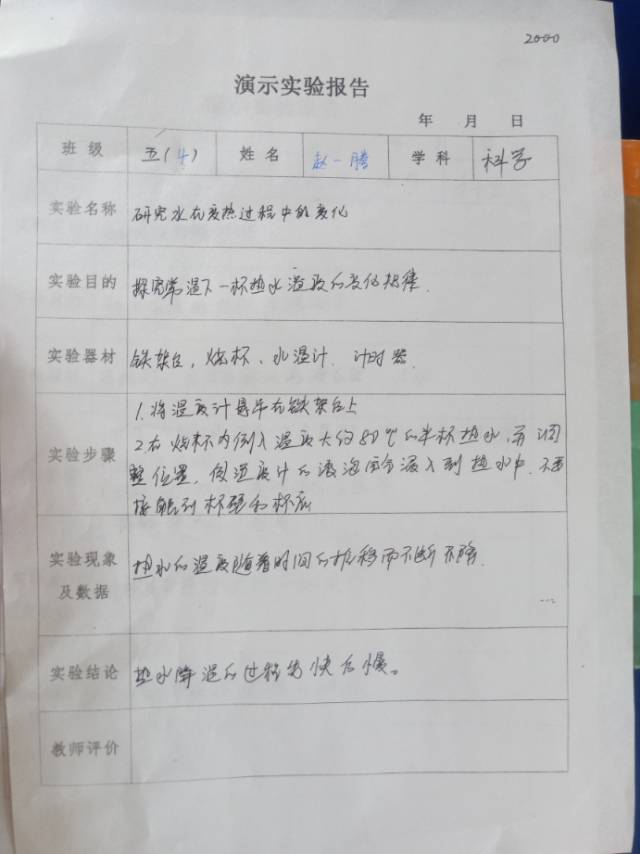 2000
演示实验报告
年 月 日
班 级 五(4) 姓 名 赵一腾 学 科 科学
实验名称 研究水在变热过程中的变化
实验目的 探究常温下一杯热水温度的变化规律.
实验器材 铁架台, 烧杯、水温计. 计时器.
1.将温度计悬吊在铁架台上
2.在烧杯内倒入温度大约80℃的半杯热水,并调
实验步骤 整位置, 使温度计的液泡完全浸入到热水中.不要
接触到杯壁和杯底
实验现象 热水的温度随着时间的推移而不断下降.
及数据
实验结论 热水降温的过程先快后慢。
教师评价